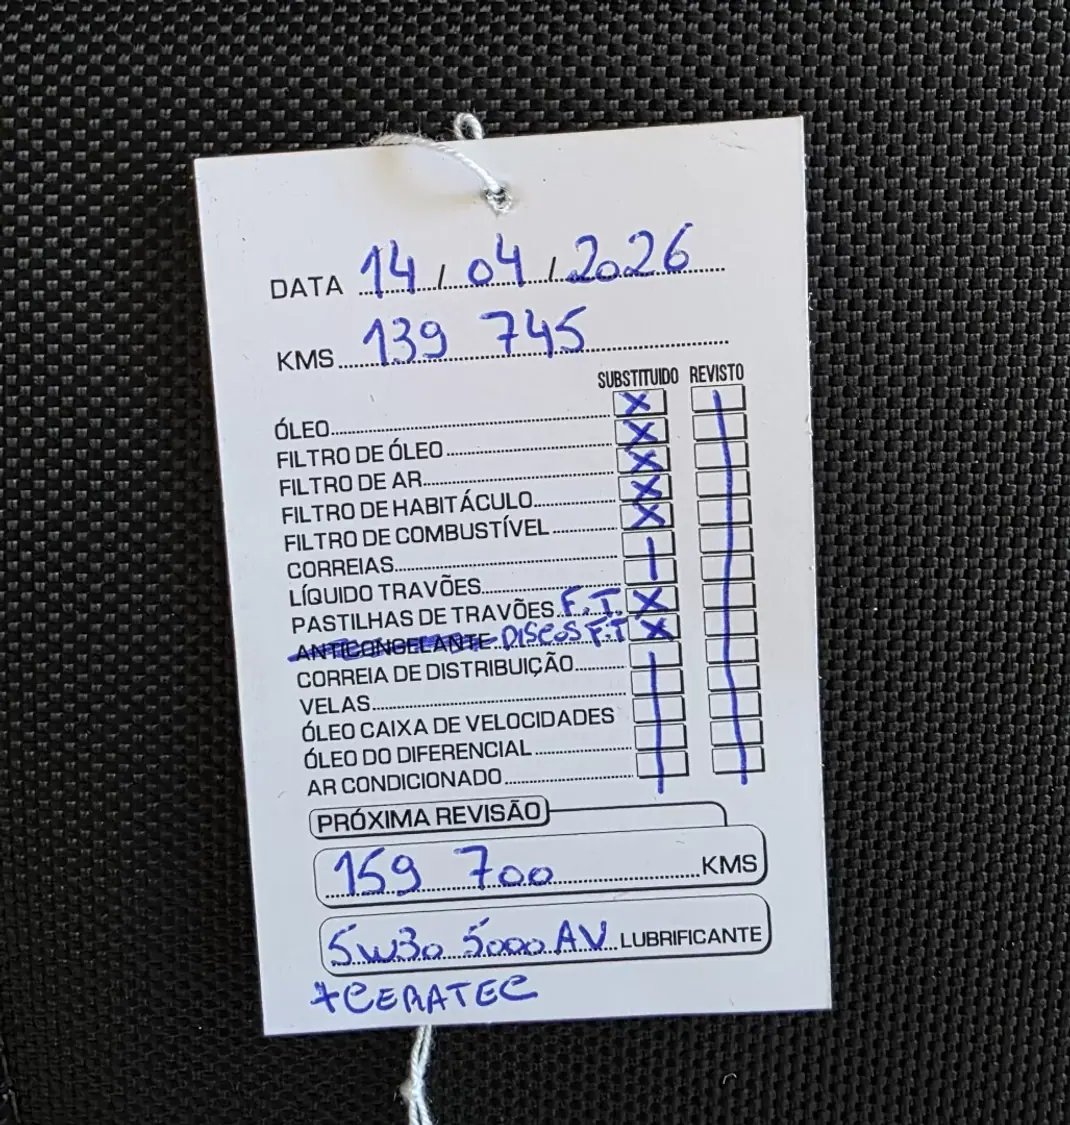 DATA 14 / 04 / 2026
KMS 139 745
SUBSTITUIDO REVISTO
ÓLEO X
FILTRO DE ÓLEO X
FILTRO DE AR X
FILTRO DE HABITÁCULO X
FILTRO DE COMBUSTÍVEL X
CORREIAS
LÍQUIDO TRAVÕES
PASTILHAS DE TRAVÕES F.T. X
ANTICONGELANTE DISCOS F.T X
CORREIA DE DISTRIBUIÇÃO
VELAS
ÓLEO CAIXA DE VELOCIDADES
ÓLEO DO DIFERENCIAL
AR CONDICIONADO
PRÓXIMA REVISÃO
159 700 KMS
5W30 5000 AV LUBRIFICANTE
+CERATEC